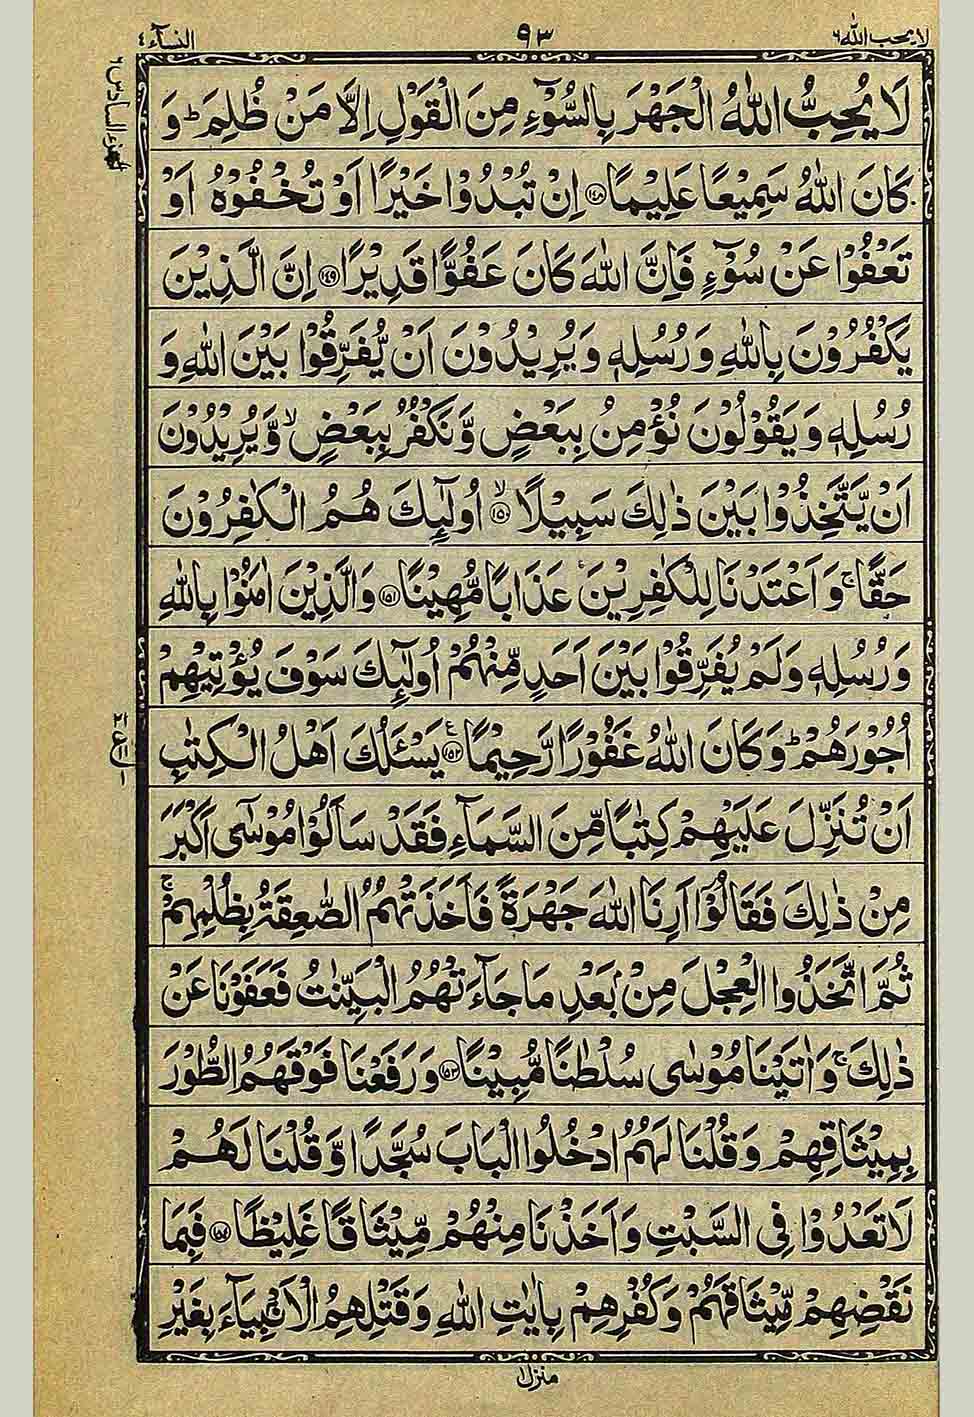 لا یحب اللہ ٦
٩٣
النسآء ٤
الجزء السادس ٦
لَا يُحِبُّ اللّٰهُ الْجَهْرَ بِالسُّوْٓءِ مِنَ الْقَوْلِ اِلَّا مَنْ ظُلِمَ ؕ وَ
كَانَ اللّٰهُ سَمِيْعًا عَلِيْمًا ﴿۱۴۸﴾ اِنْ تُبْدُوْا خَيْرًا اَوْ تُخْفُوْهُ اَوْ
تَعْفُوْا عَنْ سُوْٓءٍ فَاِنَّ اللّٰهَ كَانَ عَفُوًّا قَدِيْرًا ﴿۱۴۹﴾ اِنَّ الَّذِيْنَ
يَكْفُرُوْنَ بِاللّٰهِ وَرُسُلِهٖ وَيُرِيْدُوْنَ اَنْ يُّفَرِّقُوْا بَيْنَ اللّٰهِ وَ
رُسُلِهٖ وَيَقُوْلُوْنَ نُؤْمِنُ بِبَعْضٍ وَّنَكْفُرُ بِبَعْضٍ ۙ وَّيُرِيْدُوْنَ
اَنْ يَّتَّخِذُوْا بَيْنَ ذٰلِكَ سَبِيْلًا ۙ﴿۱۵۰﴾ اُولٰٓئِكَ هُمُ الْكٰفِرُوْنَ
حَقًّا ۚ وَاَعْتَدْنَا لِلْكٰفِرِيْنَ عَذَابًا مُّهِيْنًا ﴿۱۵۱﴾ وَالَّذِيْنَ اٰمَنُوْا بِاللّٰهِ
وَرُسُلِهٖ وَلَمْ يُفَرِّقُوْا بَيْنَ اَحَدٍ مِّنْهُمْ اُولٰٓئِكَ سَوْفَ يُؤْتِيْهِمْ
اُجُوْرَهُمْ ؕ وَكَانَ اللّٰهُ غَفُوْرًا رَّحِيْمًا ﴿۱۵۲﴾ۧ يَسْـَٔلُكَ اَهْلُ الْكِتٰبِ
اَنْ تُنَزِّلَ عَلَيْهِمْ كِتٰبًا مِّنَ السَّمَآءِ فَقَدْ سَاَلُوْا مُوْسٰٓى اَكْبَرَ
مِنْ ذٰلِكَ فَقَالُوْٓا اَرِنَا اللّٰهَ جَهْرَةً فَاَخَذَتْهُمُ الصّٰعِقَةُ بِظُلْمِهِمْ ۚ
ثُمَّ اتَّخَذُوا الْعِجْلَ مِنْۢ بَعْدِ مَا جَآءَتْهُمُ الْبَيِّنٰتُ فَعَفَوْنَا عَنْ
ذٰلِكَ ۚ وَاٰتَيْنَا مُوْسٰى سُلْطٰنًا مُّبِيْنًا ﴿۱۵۳﴾ وَرَفَعْنَا فَوْقَهُمُ الطُّوْرَ
بِمِيْثَاقِهِمْ وَقُلْنَا لَهُمُ ادْخُلُوا الْبَابَ سُجَّدًا وَّقُلْنَا لَهُمْ
لَا تَعْدُوْا فِى السَّبْتِ وَاَخَذْنَا مِنْهُمْ مِّيْثَاقًا غَلِيْظًا ﴿۱۵۴﴾ فَبِمَا
نَقْضِهِمْ مِّيْثَاقَهُمْ وَكُفْرِهِمْ بِاٰيٰتِ اللّٰهِ وَقَتْلِهِمُ الْاَنْۢبِيَآءَ بِغَيْرِ
منزل ۱